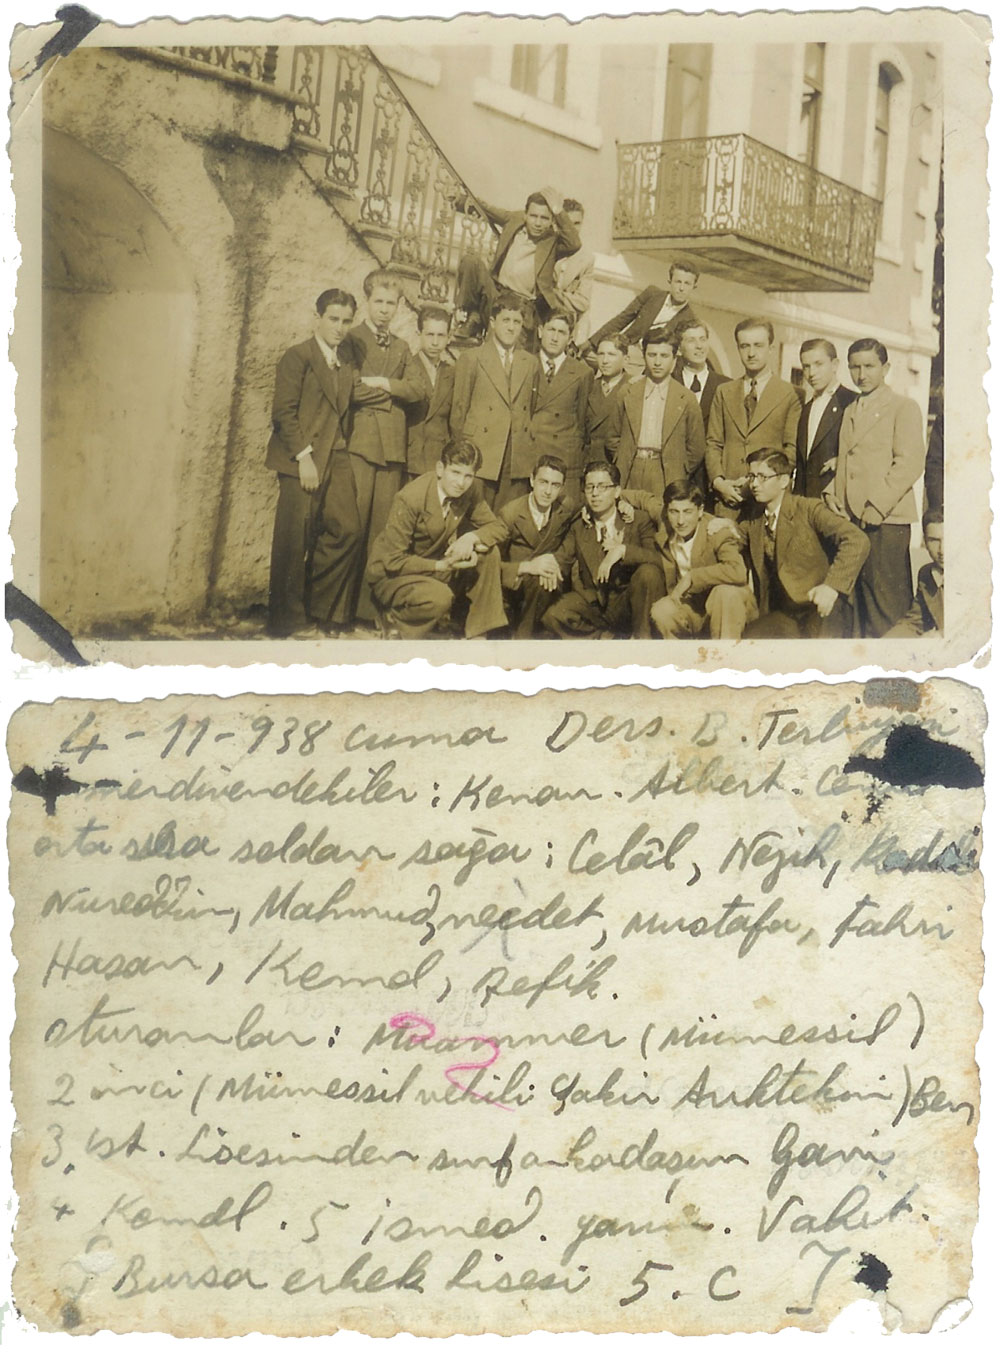 4-11-938 cuma Ders. B. Terbiyesi
merdivendekiler: Kenan. Albert.
orta sıra soldan sağa: Celâl, Nejih,
Nureddin, Mahmud, necdet, Mustafa, Fahri
Hasan, Kemal, Refik.
oturanlar: Muammer (Mümessil)
2 inci (Mümessil vekili Şakir) Ben
3. ist. Lisesinden sınıf arkadaşım Gani
4 Kemâl. 5 ismed. yarım. Vahit.
Bursa erkek Lisesi 5. C